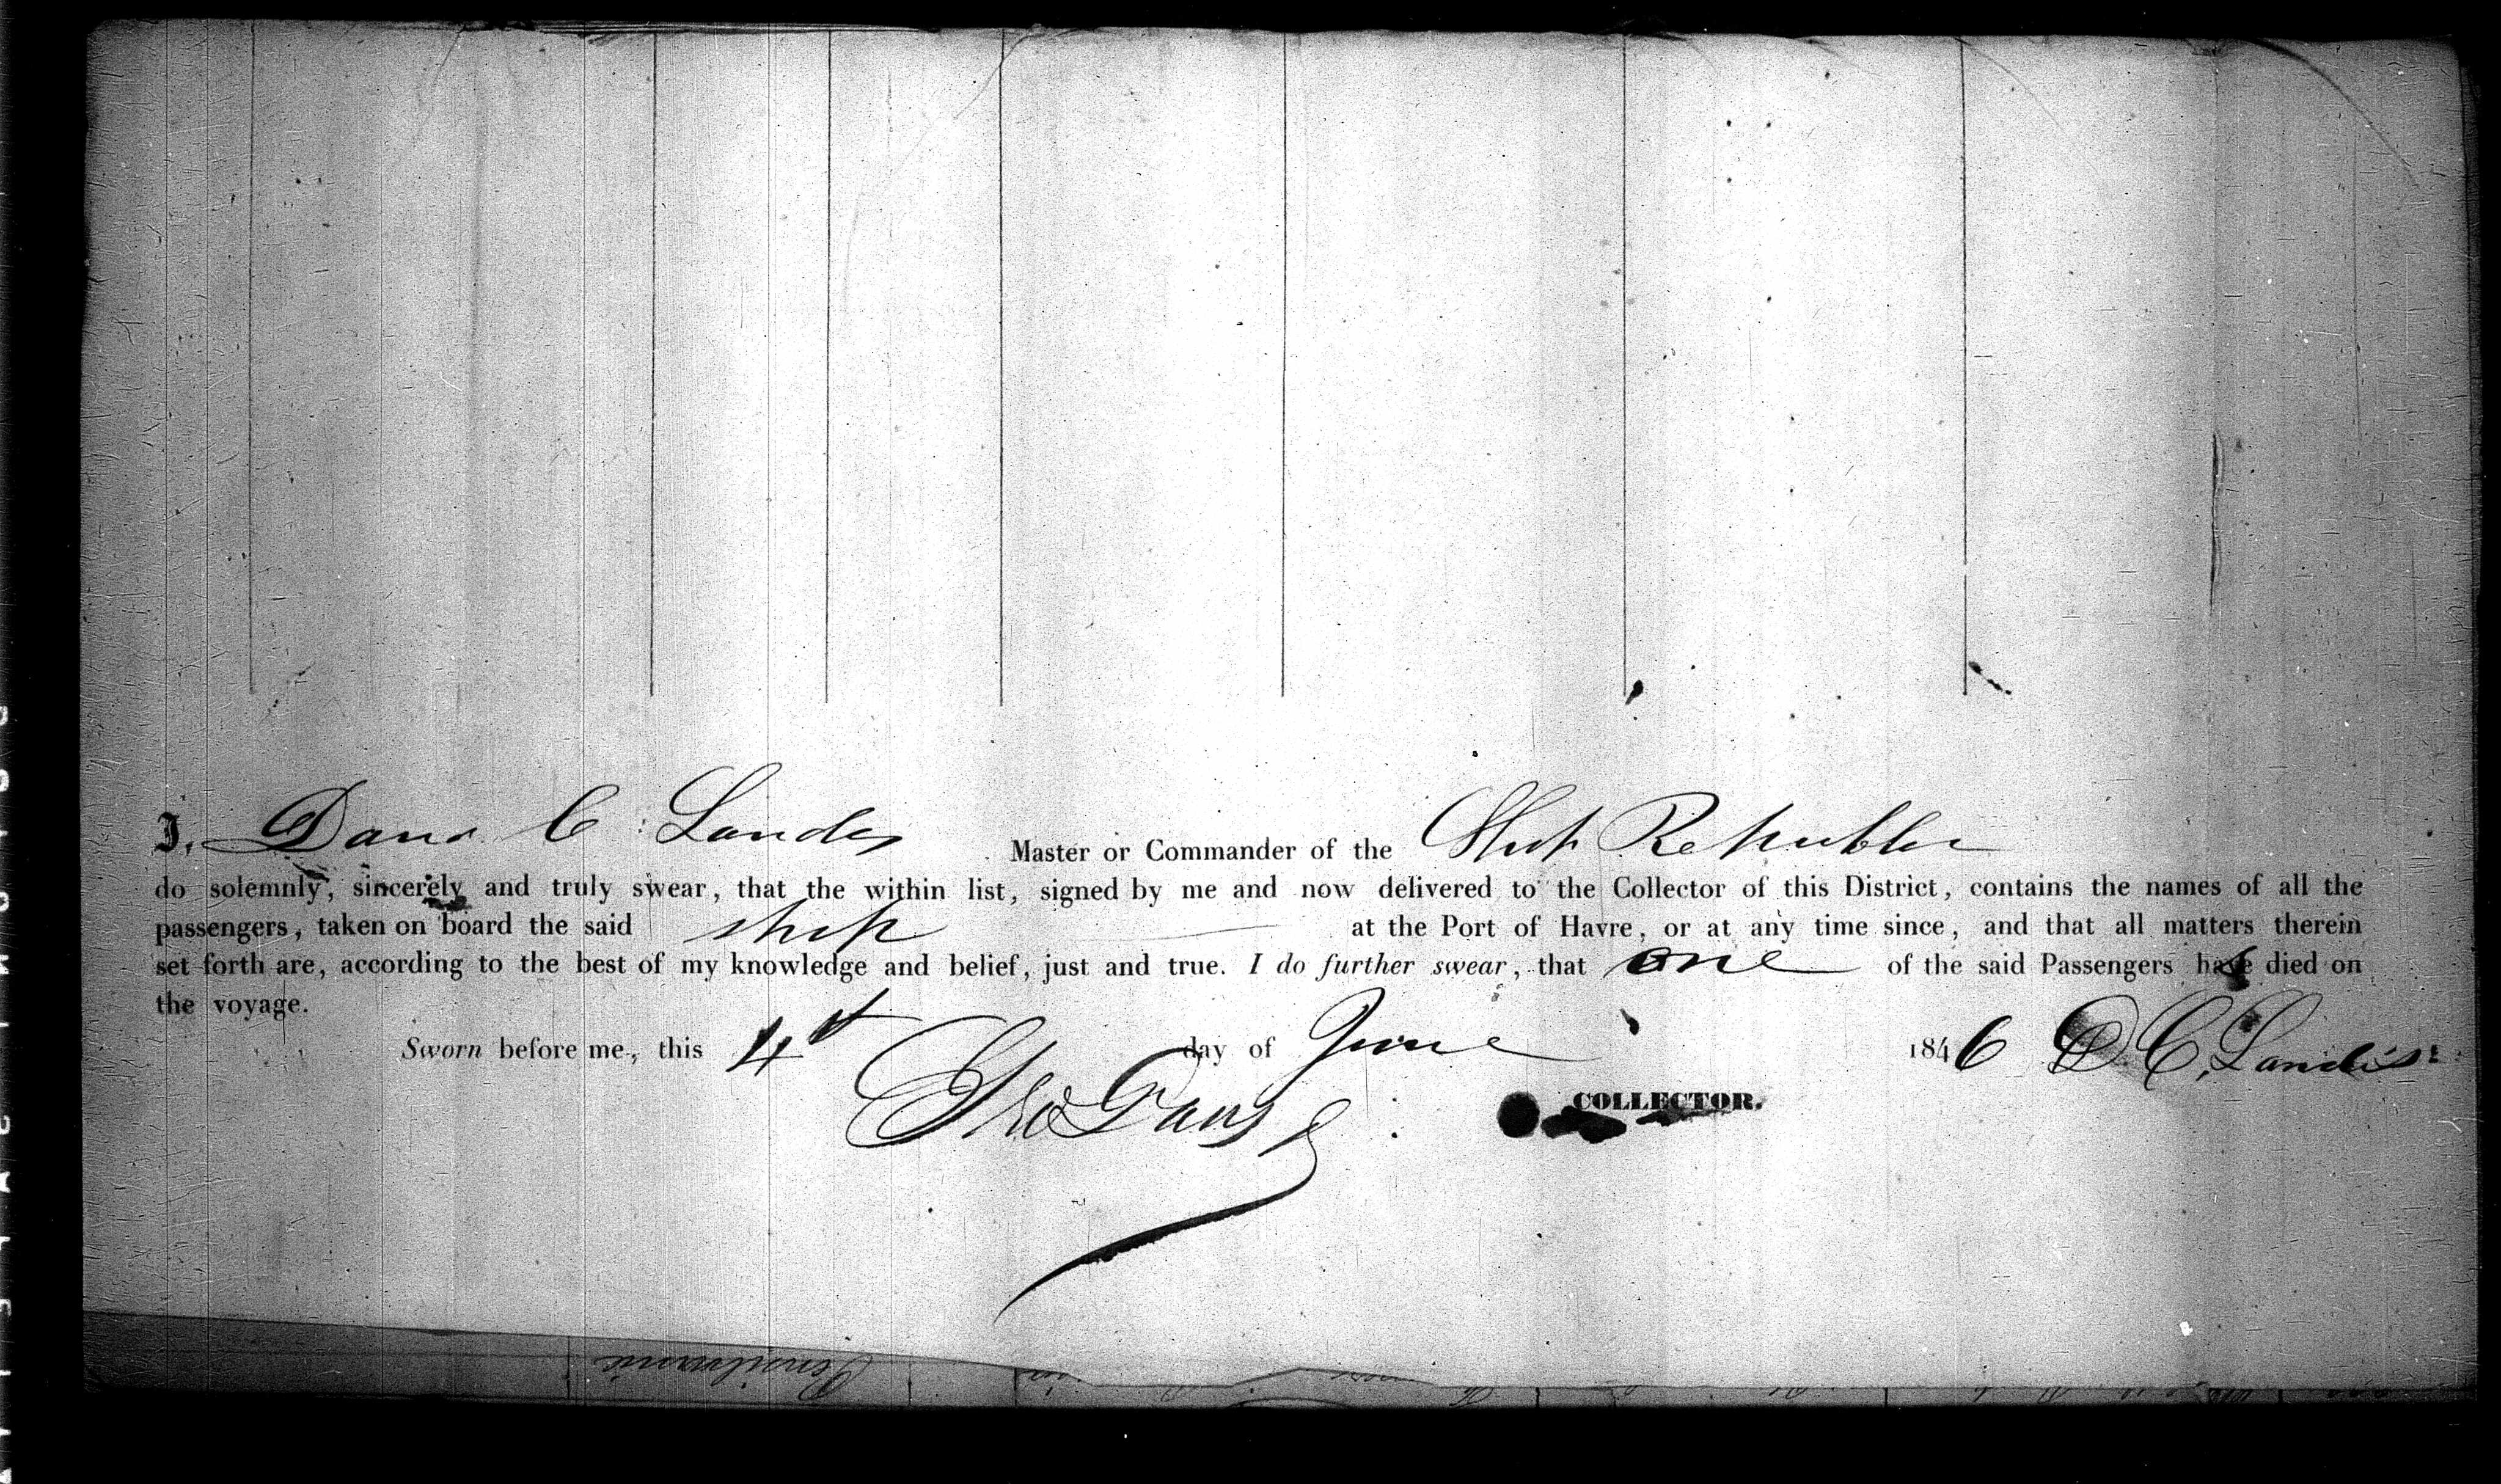 I, Dana C. Landes Master or Commander of the Ship Republic
do solemnly, sincerely and truly swear, that the within list, signed by me and now delivered to the Collector of this District, contains the names of all the
passengers, taken on board the said ship at the Port of Havre, or at any time since, and that all matters therein
set forth are, according to the best of my knowledge and belief, just and true. I do further swear, that one of the said Passengers has died on
the voyage.
Sworn before me, this 4th day of June 1846 D. C. Landis
COLLECTOR.